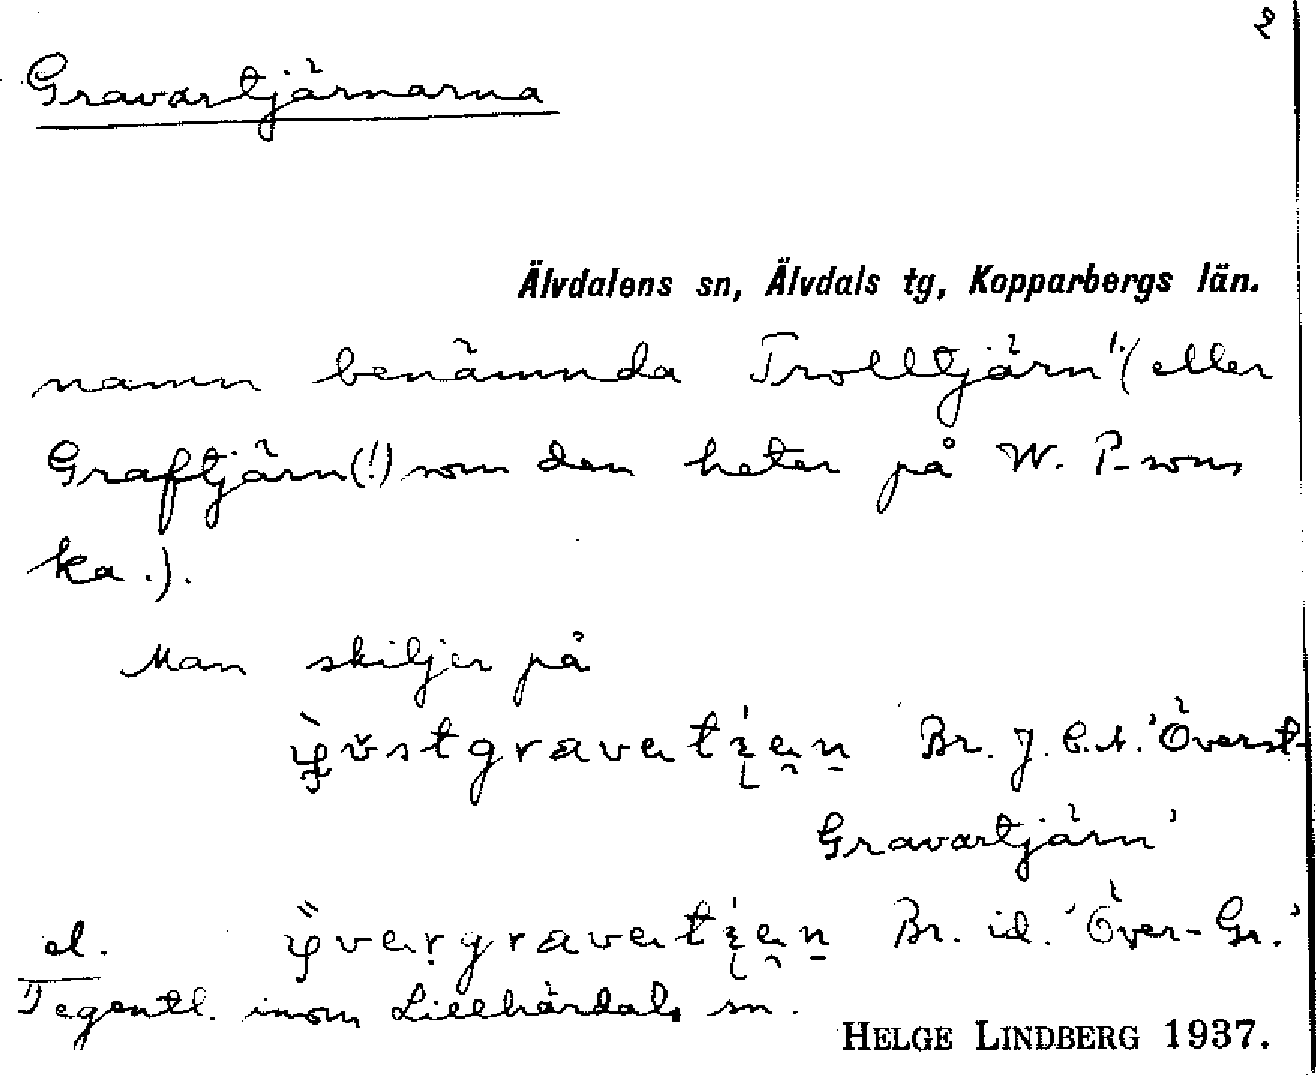 2
Gravartjärnarna
Älvdalens sn, Älvdals tg, Kopparbergs län.
namn benämnda Trolltjärn¹⁾ (eller
Graftjärn(!) som den heter på W. P-sons
ka.).
Man skiljer på
Br. J. E. A. 'Överst-
Gravartjärn'
el. Br. id. 'Över-Gr.'
¹⁾ egentl. inom Lillhärdals sn.
HELGE LINDBERG 1937.